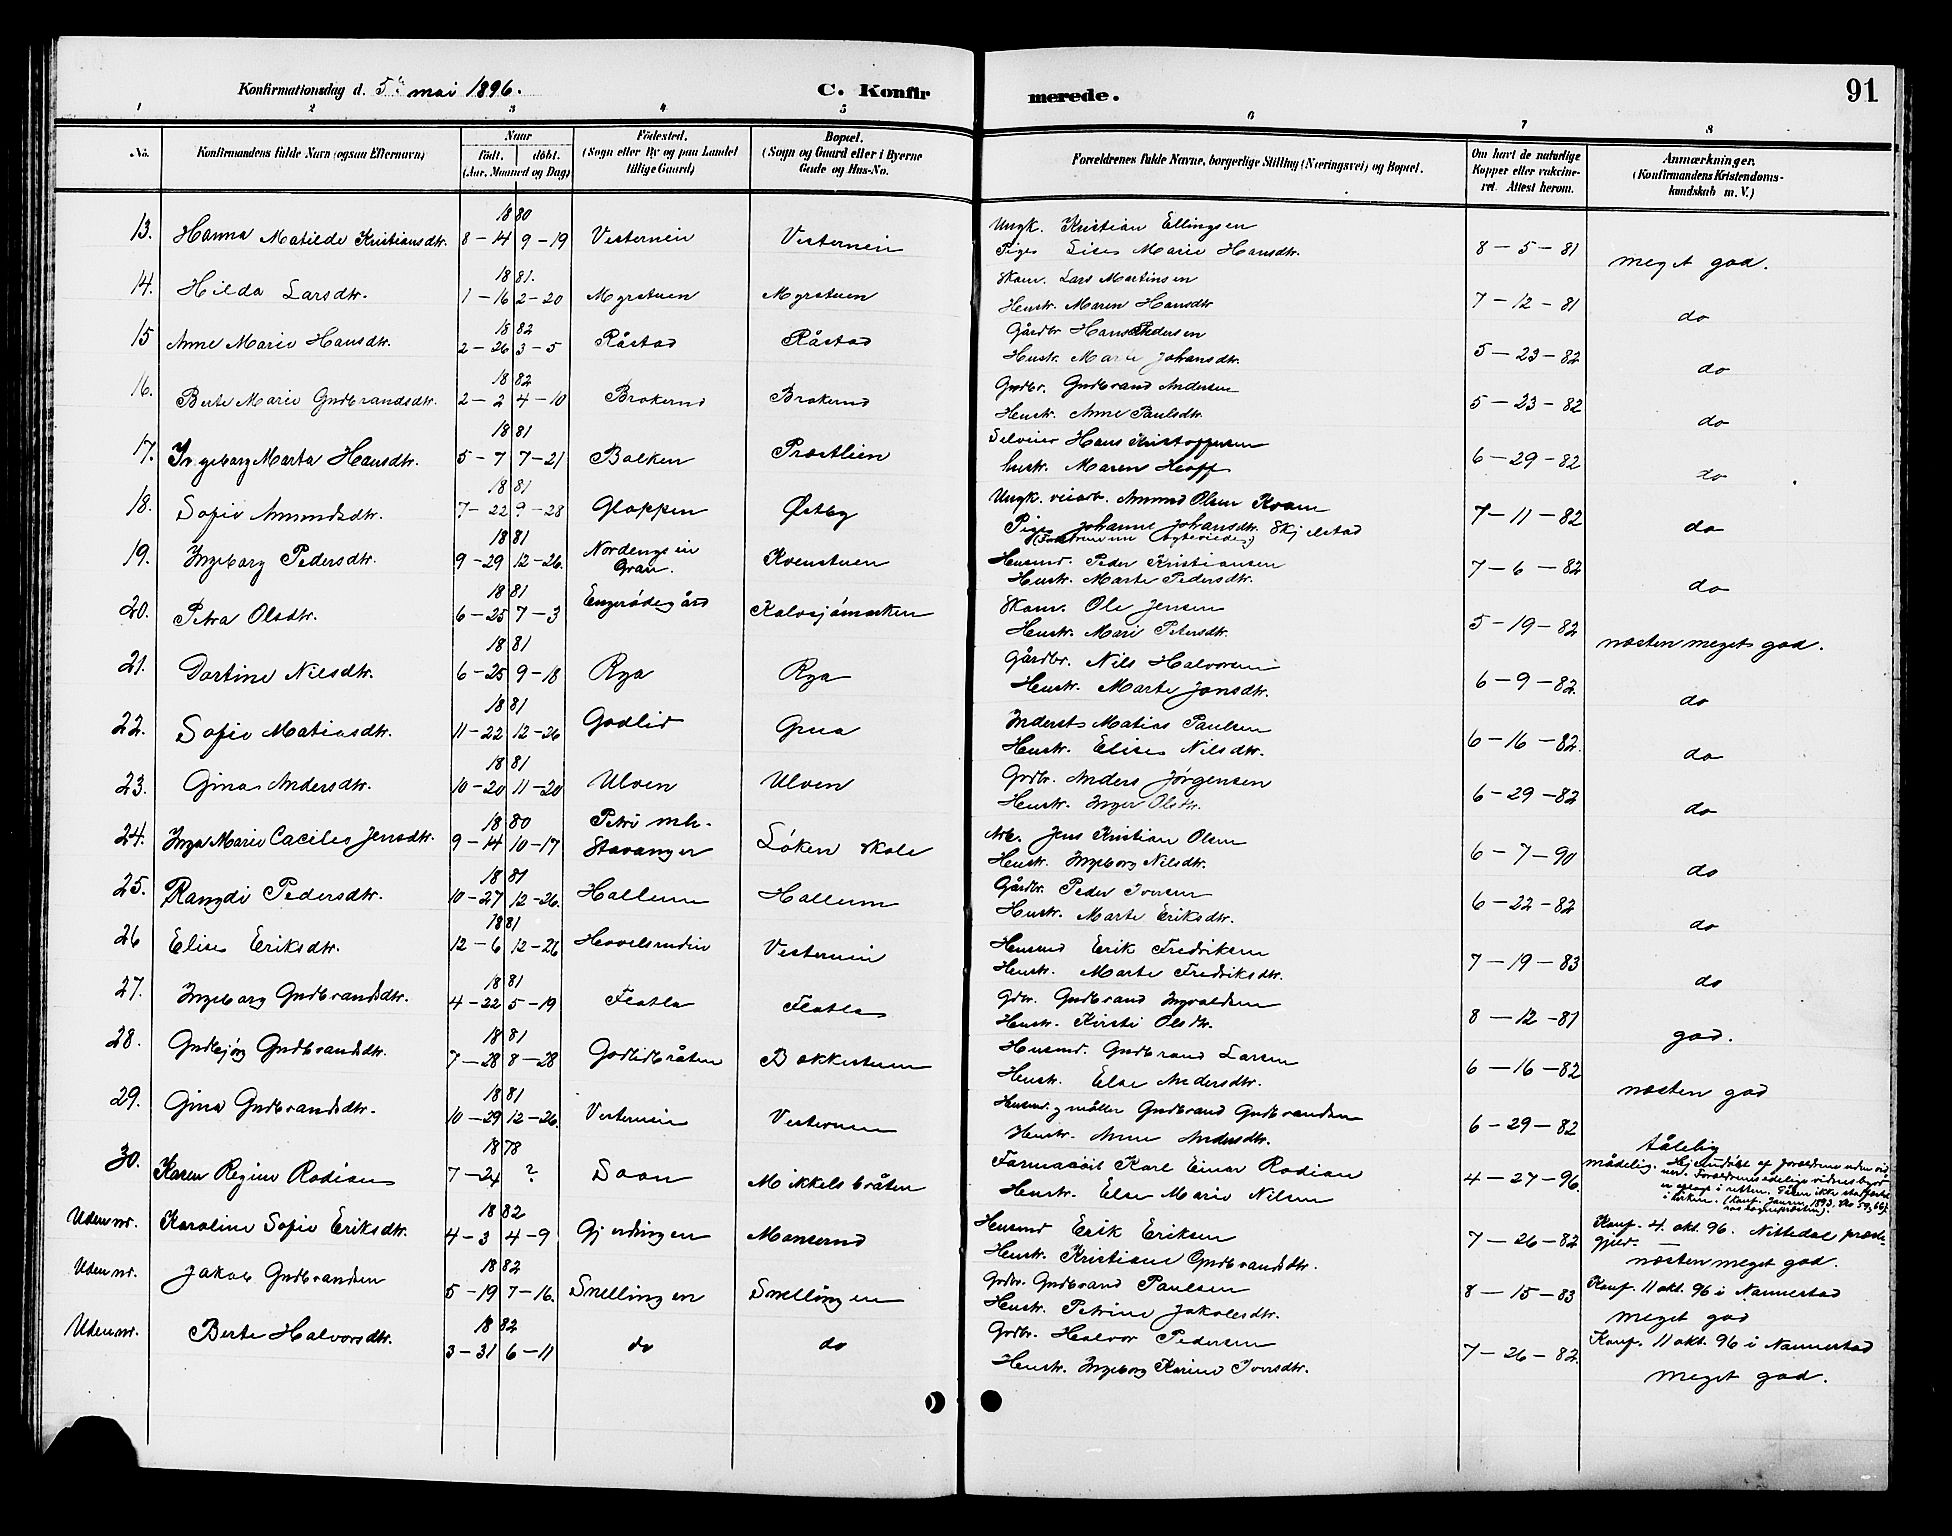 Konfirmationsdag d. 5te mai 1896. C. Konfirmerede. 91
1 2 3 4 5 6 7 8
No. Konfirmandens fulde Navn (ogsaa Efternavn) Naar født. døbt. (Aar, Maaned og Dag) Fødested. (Sogn eller By og paa Landet tillige Gaard) Bopæl. (Sogn og Gaard eller i Byerne Gade og Hus-No. Forældrenes fulde Navne, borgerlige Stilling (Næringsvei) og Bopæl. Om havt de naturlige Kopper eller vaccineret. Attest herom. Anmærkninger. (Konfirmandens Kristendomskundskab m. V.)
1880
13. Hanna Matilde Kristiansdtr. 8-14 9-19 Vesternein Vesternein Ungk. Kristian Ellingsen
Pige Lise Marie Hansdtr. 8-5-81 meget god.
1881.
14. Hilda Larsdtr. 1-16 2-20 Myrstuen Myrstuen Skom. Lars Martinsen
Hustr. Maren Hansdtr 7-12-81 do
1882
15 Anne Marie Hansdtr. 2-26 3-5 Råstad Råstad Gårdbr Hans Pedersen
Hustr. Marie Johansdtr. 5-23-82 do
1882
16. Berte Marie Gudbrandsdtr. 2-2 4-10 Brakerud Brakerud Grdbr. Gudbrand Andersen
Hustr. Anne Paulsdtr. 5-23-82 do
1881
17. Ingeborg Marta Hansdtr. 5-7 7-21 Balken Præstlien Selveier Hans Kristoffersen
hustr. Maren Hoff 6-29-82 do
1881
18. Sofie Amundsdtr. 7-22 9-28 Gloppen Østby Ungk. veiarb. Amund Olsen Kroen
Pige Johanne Johansdtr. Skjelstad 7-11-82 do
1881
19. Ingeborg Pedersdtr. 9-29 12-26. Nordengsein Gran. Kvenstuen Husmd. Peder Kristiansen
Hustr. Marte Pedersdtr. 7-6-82 do
1881
20. Petra Olsdtr. 6-25 7-3 Engerødegård Kalvsjømarken Skom. Ole Jensen
Hustr. Mari Petersdtr. 5-19-82 næsten meget god.
1881
21. Dortine Nilsdtr. 6-25 9-18 Rya Rya Gårdbr. Nils Halvorsen
Hustr. Marte Jonsdtr. 6-9-82. do
1881
22. Sofie Matiasdtr. 11-22 12-26 Godlid Grua Inderst Matias Paulsen
Hustr. Elise Nilsdtr. 6-16-82. do
1881
23. Gina Andersdtr. 10-20 11-20 Ulven Ulven Grdbr. Anders Jørgensen
Hustr. Inger Olsdtr. 6-29-82 do
1880
24. Inga Marie Cacilie Jensdtr. 9-14 10-17 Petri mh. Stavanger Løken skole Arb. Jens Kristian Olsen
Hustr. Ingeborg Nilsdtr. 6-7-90 do
1881
25. Rangdi Pedersdtr. 10-27 12-26. Hallum Hallum Gårdbr. Peder Iversen
Hustr. Marte Eriksdtr. 6-22-82 do
1881
26 Elise Eriksdtr. 12-6 12-26 Hovelsrudei Vesternein Husmd Erik Fredriksen
Hustr. Marte Fredriksdtr. 7-19-83 do
1881
27. Ingeborg Gudbrandsdtr. 4-22 5-19 Flatla Flatla Gdbr. Gudbrand Ingvaldsen
Hustr. Kirsti Olsdtr. 8-12-81 god.
1881
28. Gudbjør Gudbrandsdtr. 7-28 8-28 Godlidbråten Bakkestuen Husmd. Gudbrand Larsen
Hustr. Else Andersdtr. 6-16-82 næsten god
1881
29. Gina Gudbrandsdtr. 10-29 12-26. Vesternein Vesternein Husmd. g møller Gudbrand Gudbrandsen
Hustr. Anne Andersdtr. 6-29-82 tålelig
1878
30. Karen Regine Rodian 7-24 ? Soon Mikkelsbråten Farmacöit Karl Einar Rodian
Hustr. Else Marie Nilsen 4-27-96. mådelig. Hjemdøbt af forældrene uden vidner. Forældrenes edelige vidnesbyrd er aflagt i retten.
1882
Uden nr. Karoline Sofie Eriksdtr. 4-3 4-9 Gjerdingen Mansrud Husmd Erik Eriksen
Hustr. Kristiane Gudbrandsdtr. 7-26-82 Konf. 4. okt. 96. Nittedal præstegjeld. — næsten meget god.
1882
Uden nr. Jakob Gudbrandsen 5-19 7-16. Snellingen Snellingen Grdbr. Gudbrand Paulsen
Hustr. Petrine Jakobsdtr. 8-15-83 Konf. 11 okt. 96 i Nannestad meget god
1882
Uden nr. Berte Halvorsdtr. 3-31 6-11 do do Grdbr. Halvor Pedersen
Hustr. Ingeborg Karine Iversdtr. 7-26-82. Konf. 11 okt. 96 i Nannestad meget god.